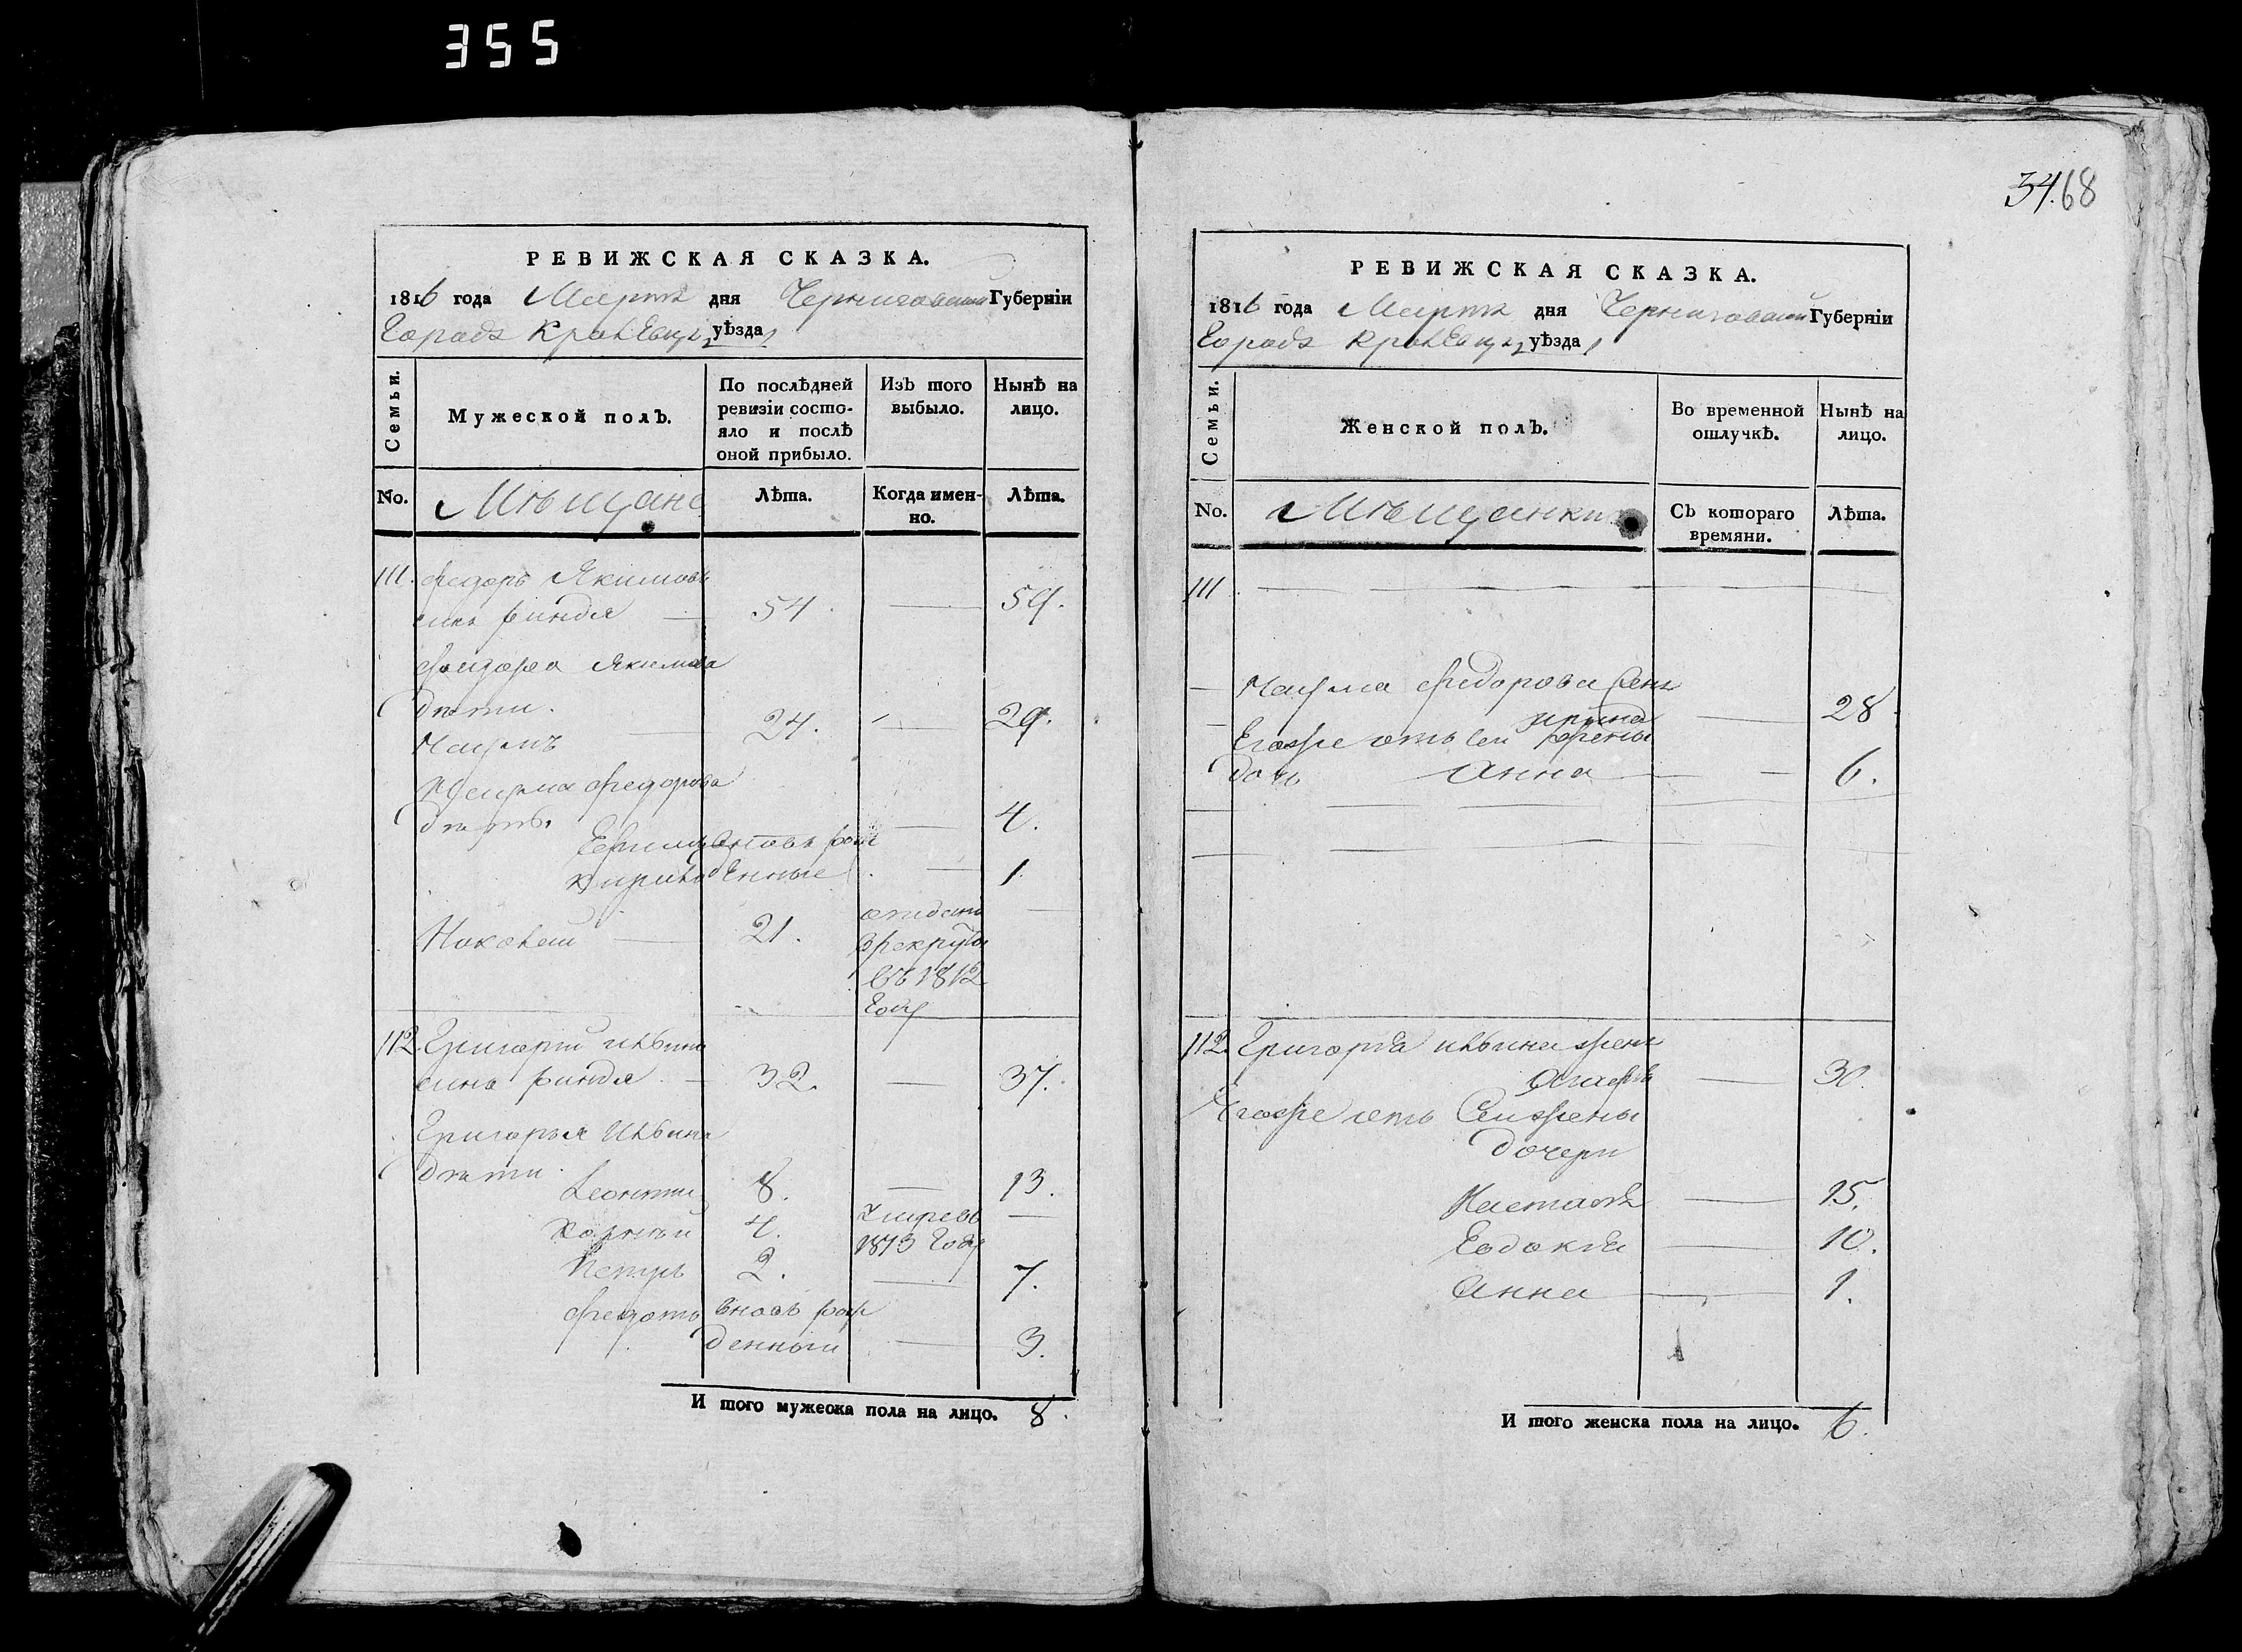 355
34.68
РЕВИЖСКАЯ СКАЗКА.
1816 года Марта дня Черниговской Губерніи
Города Кролевца уѣзда
Семьи.
Мужеской полъ.
По послѣдней ревизіи состо-
яло и послѣ
оной прибыло.
Изъ того
выбыло.
Нынѣ на
лицо.
No.
Мѣщане
Лѣта.
Когда имен-
но.
Лѣта.
111. Федоръ Якимовъ
синъ 54. 59.
Федора Якимова
дѣти.
24. 29.
Федорова
дѣти
Ефимъ вновь рож 4.
Кирило денные 1
21. отданъ
в рекруты
въ 1812
году
112. Григорій Ильинъ
синъ 32. 37.
Григорья Ильина
дѣти
Леонтий 8. 13.
Корнѣй 4. умре въ
1813 году
Петръ 2. 7.
Федотъ вновь рож
денный 3.
И того мужеска пола на лицо. 8.
РЕВИЖСКАЯ СКАЗКА.
1816 года Марта дня Черниговской Губерніи
Города Кролевца уѣзда
Семьи.
Женской полъ.
Во временной
отлучкѣ.
Нынѣ на
лицо.
No.
Мѣщанки
Съ котораго
времяни.
Лѣта.
111
Федорова жена
ирина 28
Егоже отъ сей жены
дочь Анна 6.
112. Григорія ильина жена
Агафія 30.
Егоже отъ Сей жены
дочери
Настасія 15.
Евдокія 10.
Анна 1.
И того женска пола на лицо. 6.